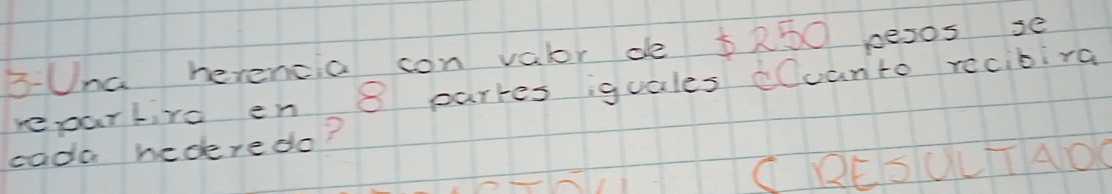 3-Una herencia con valor de $250 pesos se
repartira en 8 partes iguales ¿Cuanto recibira
cada hederedo?
RESULTADO